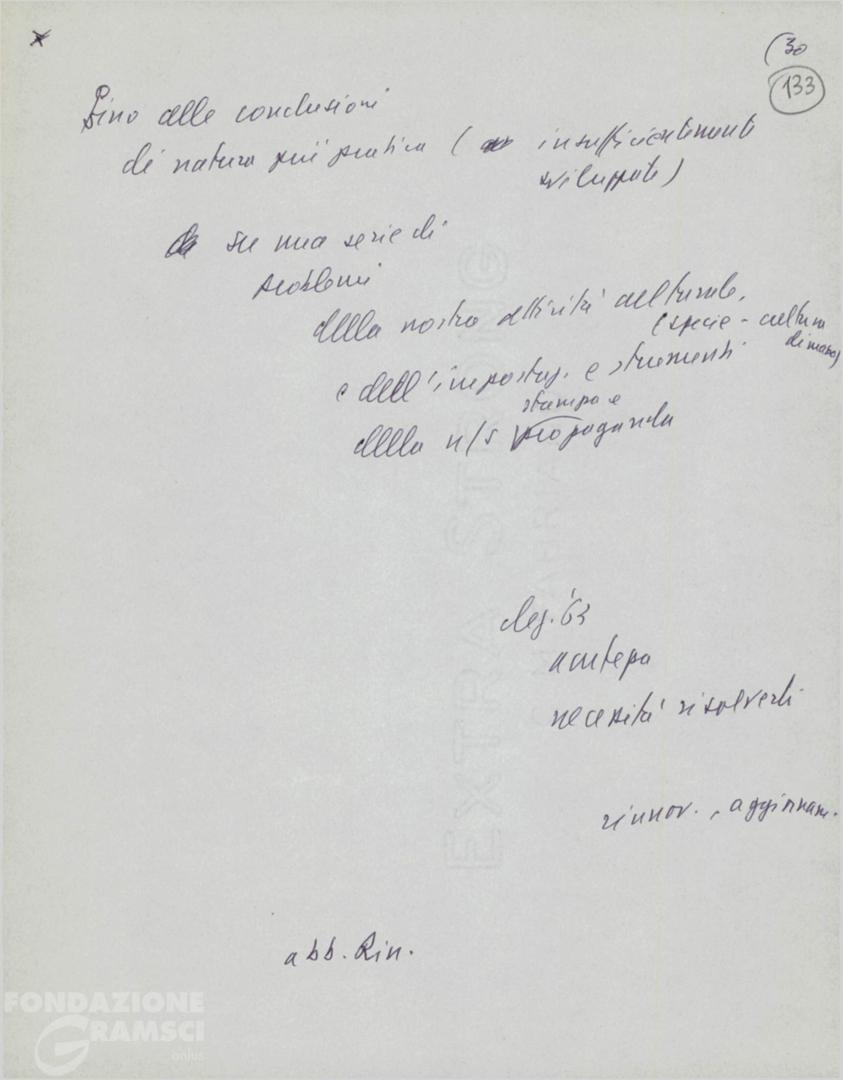 (30
133
Sino alle conclusioni
di natura più pratica ( insufficientemente
sviluppate)
su una serie di
problemi
della nostra attività culturale,
(specie - cultura
di massa)
e dell'impostaz. e strumenti
stampa e
della n/s propaganda
'63
necessità risolverli
rinnov. , aggiornam.
abb. Rin.
EXTRA STRONG
FONDAZIONE
GRAMSCI
onlus